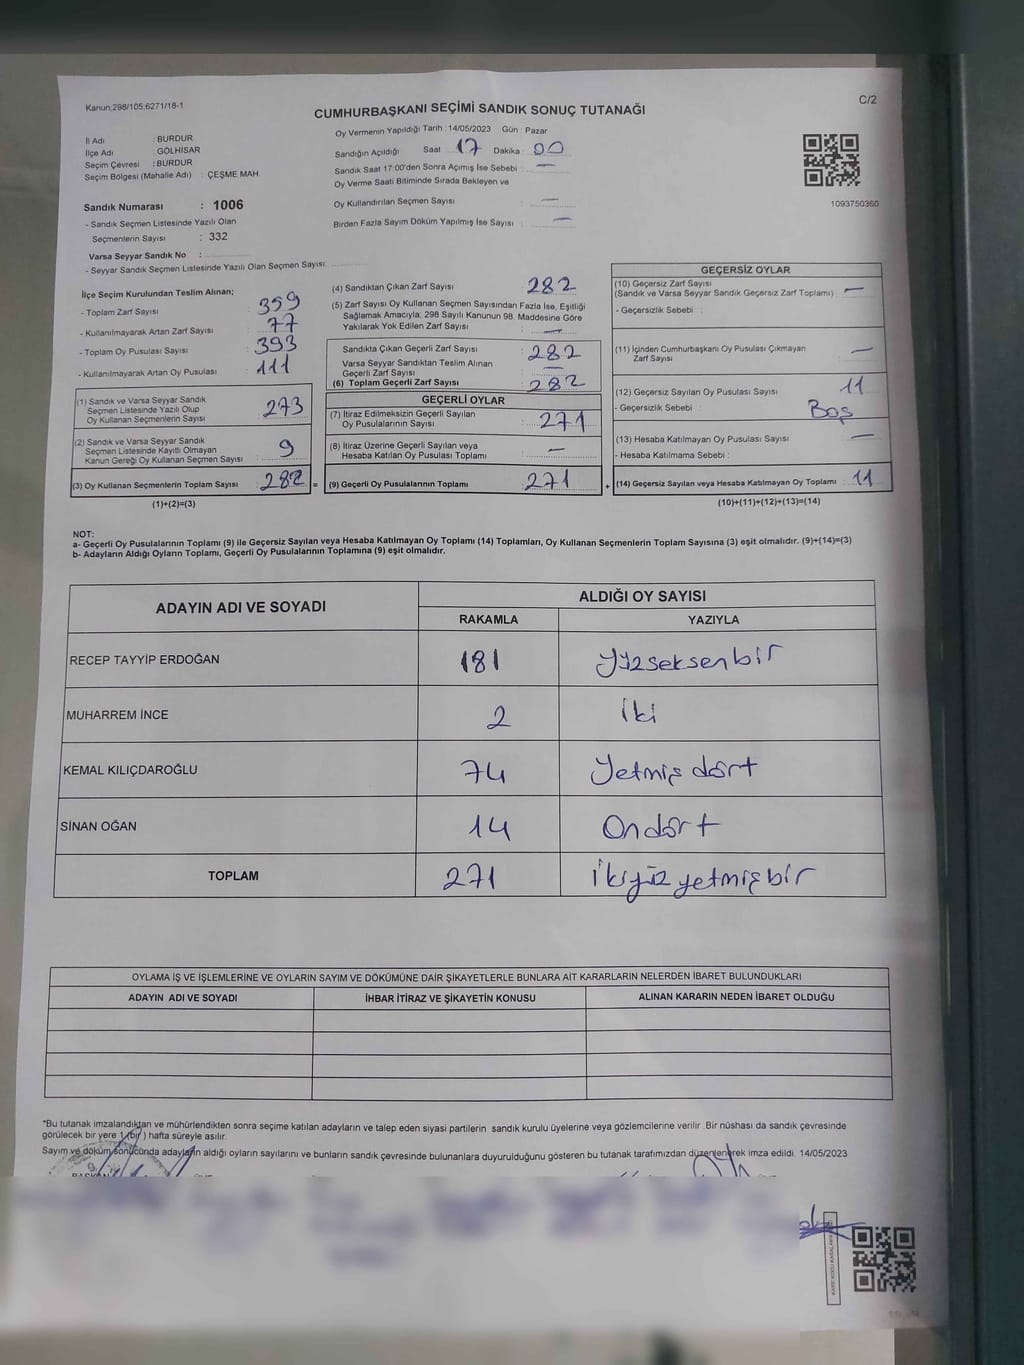 Kanun;298/105;6271/18-1
C/2
CUMHURBAŞKANI SEÇİMİ SANDIK SONUÇ TUTANAĞI
İl Adı : BURDUR
İlçe Adı : GÖLHİSAR
Seçim Çevresi : BURDUR
Seçim Bölgesi (Mahalle Adı) : ÇEŞME MAH.
Sandık Numarası : 1006
- Sandık Seçmen Listesinde Yazılı Olan
Seçmenlerin Sayısı : 332
Varsa Seyyar Sandık No :
- Seyyar Sandık Seçmen Listesinde Yazılı Olan Seçmen Sayısı
Oy Vermenin Yapıldığı Tarih : 14/05/2023 Gün : Pazar
Sandığın Açıldığı Saat 17 Dakika : 00
Sandık Saat 17:00'den Sonra Açımış İse Sebebi : —
Oy Verme Saati Bitiminde Sırada Bekleyen ve
Oy Kullandırılan Seçmen Sayısı : —
Birden Fazla Sayım Döküm Yapılmış İse Sayısı : —
1093750360
İlçe Seçim Kurulundan Teslim Alınan;
- Toplam Zarf Sayısı : 359
- Kullanılmayarak Artan Zarf Sayısı : 77
- Toplam Oy Pusulası Sayısı : 393
- Kullanılmayarak Artan Oy Pusulası : 111
(1) Sandık ve Varsa Seyyar Sandık
Seçmen Listesinde Yazılı Olup
Oy Kullanan Seçmenlerin Sayısı : 273
(2) Sandık ve Varsa Seyyar Sandık
Seçmen Listesinde Kayıtlı Olmayan
Kanun Gereği Oy Kullanan Seçmen Sayısı : 9
(3) Oy Kullanan Seçmenlerin Toplam Sayısı : 282 =
(1)+(2)=(3)
(4) Sandıktan Çıkan Zarf Sayısı : 282
(5) Zarf Sayısı Oy Kullanan Seçmen Sayısından Fazla İse, Eşitliği
Sağlamak Amacıyla; 298 Sayılı Kanunun 98. Maddesine Göre
Yakılarak Yok Edilen Zarf Sayısı : —
Sandıkta Çıkan Geçerli Zarf Sayısı : 282
Varsa Seyyar Sandıktan Teslim Alınan
Geçerli Zarf Sayısı : —
(6) Toplam Geçerli Zarf Sayısı : 282
GEÇERLİ OYLAR
(7) İtiraz Edilmeksizin Geçerli Sayılan
Oy Pusulalarının Sayısı : 271
(8) İtiraz Üzerine Geçerli Sayılan veya
Hesaba Katılan Oy Pusulası Toplamı : —
(9) Geçerli Oy Pusulalarının Toplamı : 271 +
GEÇERSİZ OYLAR
(10) Geçersiz Zarf Sayısı
(Sandık ve Varsa Seyyar Sandık Geçersiz Zarf Toplamı) : —
- Geçersizlik Sebebi :
(11) İçinden Cumhurbaşkanı Oy Pusulası Çıkmayan
Zarf Sayısı : —
(12) Geçersiz Sayılan Oy Pusulası Sayısı : 11
- Geçersizlik Sebebi : Boş
(13) Hesaba Katılmayan Oy Pusulası Sayısı : —
- Hesaba Katılmama Sebebi :
(14) Geçersiz Sayılan veya Hesaba Katılmayan Oy Toplamı : 11
(10)+(11)+(12)+(13)=(14)
NOT:
a- Geçerli Oy Pusulalarının Toplamı (9) ile Geçersiz Sayılan veya Hesaba Katılmayan Oy Toplamı (14) Toplamları, Oy Kullanan Seçmenlerin Toplam Sayısına (3) eşit olmalıdır. (9)+(14)=(3)
b- Adayların Aldığı Oyların Toplamı, Geçerli Oy Pusulalarının Toplamına (9) eşit olmalıdır.
ADAYIN ADI VE SOYADI
ALDIĞI OY SAYISI
RAKAMLA YAZIYLA
RECEP TAYYİP ERDOĞAN 181 Yüzseksenbir
MUHARREM İNCE 2 iki
KEMAL KILIÇDAROĞLU 74 Yetmiş dört
SİNAN OĞAN 14 Ondört
TOPLAM 271 İkiyüz yetmişbir
OYLAMA İŞ VE İŞLEMLERİNE VE OYLARIN SAYIM VE DÖKÜMÜNE DAİR ŞİKAYETLERLE BUNLARA AİT KARARLARIN NELERDEN İBARET BULUNDUKLARI
ADAYIN ADI VE SOYADI İHBAR İTİRAZ VE ŞİKAYETİN KONUSU ALINAN KARARIN NEDEN İBARET OLDUĞU
"Bu tutanak imzalandıktan ve mühürlendikten sonra seçime katılan adayların ve talep eden siyasi partilerin sandık kurulu üyelerine veya gözlemcilerine verilir .Bir nüshası da sandık çevresinde
görülecek bir yere 1 (bir ) hafta süreyle asılır.
Sayım ve döküm sonucunda adayların aldığı oyların sayılarını ve bunların sandık çevresinde bulunanlara duyurulduğunu gösteren bu tutanak tarafımızdan düzenlenerek imza edildi. 14/05/2023
BAŞKAN